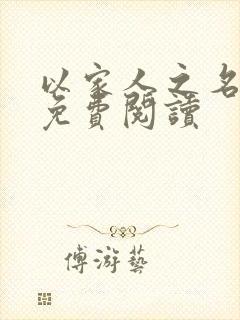 以家人之名
免費閱讀
傅游藝